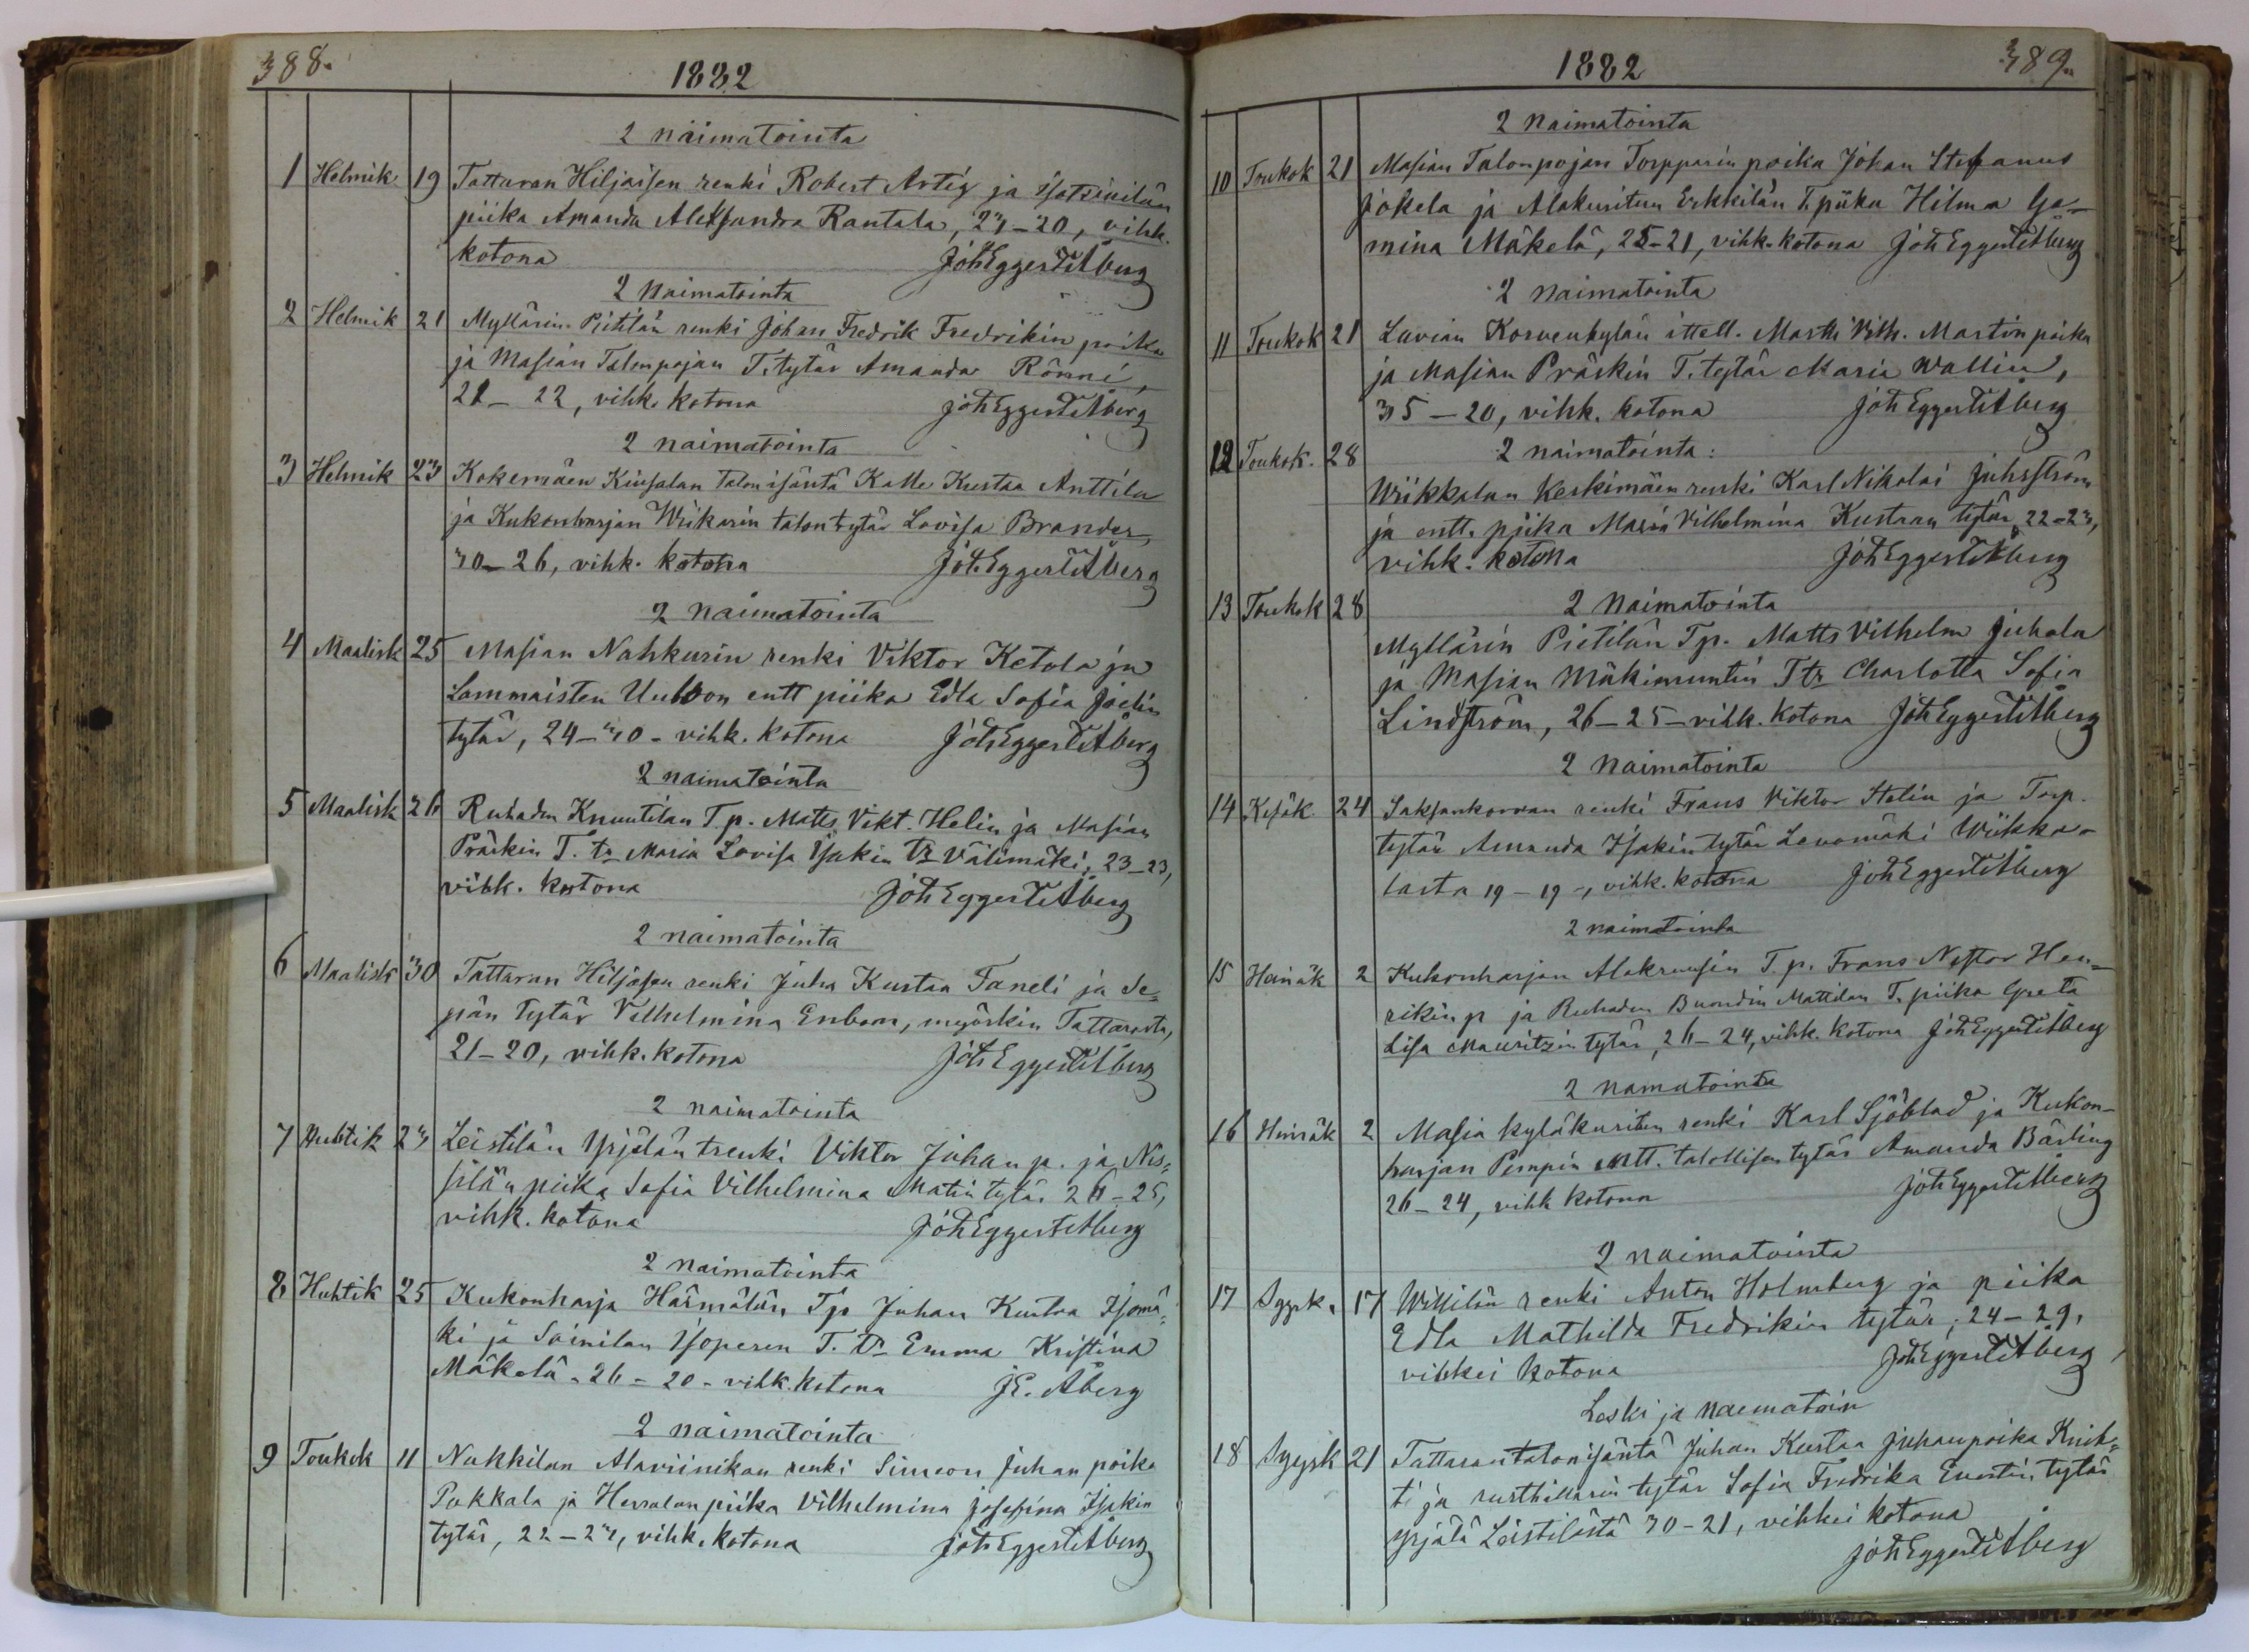 388.
1882
2 naimatointa
1 Helmik. 19 Tattaran Hiljaisen renki Robert Artig ja
piika Amanda Aleksandra Rantala, 23-20, vihk.
kotona Joh Eggert Åberg
2 Naimatointa
2 Helmik 21 Myllärin Pietilän renki Johan Fredrik Fredrikin poika
ja Masian Talonpojan T. tytär Amanda Rönni,
21- 22, vihk. kotona Joh Eggert Åberg
2 naimatointa
3 Helmik 23 Kokemäen Talon isäntä Kalle Kustaa Anttila
ja Kukonharjan Wiikarin talon tytär Lovisa Brander,
30-26, vihk. kotona Joh. Eggert Åberg
2 naimatointa
4 Maalisk 25 Masian Nahkurin renki Viktor Ketola ja
Lammaisten entt piika Edla Sofia Joelin
tytär, 24-30- vihk. kotona Joh Eggert Åberg
2 naimatointa
5 Maalisk 26 Ruhaden Knuutilan T.p. Matts Vikt. Helin ja Masian
Präskin T. tr Maria Lovisa Isakin tr Välimäki, 23-23,
vihk. kotona Joh Eggert Åberg
2 naimatointa
6 Maalisk 30 Tattaran Hiljasen renki Juha Kustaa Faneli ja Se=
pän tytär Vilhelmina Enbom, myöskin Tattarasta,
21-20, vihk. kotona Joh Eggert Åberg
2 naimatointa
7 Huhtik 23 Leistilän Yrjölän trenki Viktor Johan p. ja Nis=
silän piika Sofia Vilhelmina Matin tytär 26-25,
vihk. kotona Joh Eggert Åberg
2 naimatointa
8 Huhtik 25 Kukonharja Härmälän Tp Juhan Kustaa Isomä=
ki ja Soinilan Isoperen T. tr Emma Kristina
Mäkelä - 26 - 20 - vihk. kotona J.E. Åberg
2 naimatointa
9 Toukok 11 Nakkilan Alaviinikan renki Simeon Juhan poika
Pukkala ja Herralan piika Vilhelmina Josefina Isakin
tytär, 22-23, vihk. kotona Joh Eggert Åberg
1882
389.
2 naimatointa
10 Toukok 21 Masian Talonpojan Torpparin poika Johan Stefanus
Jokela ja Alakuritun Erkkilän T. piika Hilma Ge-
mina Mäkelä, 25-21, vihk. kotona Joh Eggert Åberg
2 naimatointa
11 Toukok 21 Lavian Korvenkylän ittell. Martti Vilh. Martin poika
ja Masian Präskin T. tytär Maria Wallin,
35-20, vihk. kotona Joh Eggert Åberg
12 Toukok. 28 2 naimatointa:
Wiikkalan Keskimäen renki Karl Nikolai Juhrström
ja entt. piika Maria Vilhelmina Kustaan tytär, 22-23,
vihk. kotona Joh Eggert Åberg
13 Toukok 28 2 Naimatointa
Myllärin Pietilän Tp. Matts Vilhelm Juhala
ja Masian Ttr Charlotta Sofia
Lindström, 26-25-vihk. kotona Joh Eggert Åberg
2 Naimatointa
14 Kesäk. 24 Saksankorvan renki Frans Viktor Stelin ja Torp.
tytär Amanda Isakin tytär Levomäki Wiikka-
lasta 19-19-, vihk. kotona Joh Eggert Åberg
2 naimatointa
15 Heinäk 2 Kukonharjan Alakruusin T.p. Frans Nestor Hen=
rikin p ja Ruhaden Mattilan T. piika Greta
Lisa Mauritzin tytär, 26-24, vihk. kotona Joh Eggert Åberg
2 namatointa
16 Heinäk 2 Masia kyläkuritun renki Karl Sjöblad ja Kukon-
harjan Pempin entt. talollisen tytär Amanda Bärling
26-24, vihk kotona Joh Eggert Åberg
2 naimatointa
17 Syysk. 17 Willilän renki Anton Holmberg ja piika
Edla Mathilda Fredrikin tytär, 24-29,
vihkei kotona Joh Eggert Åberg
Leski ja naematoin
18 Syysk 21 Tattaran talonisäntä Juhan Kustaa Juhanpoika Knih=
ti ja rusthillarin tytär Sofia Fredrika Evertin tytär
yrjälä Leistilästä 30-21, vihkei kotona
Joh Eggert Åberg